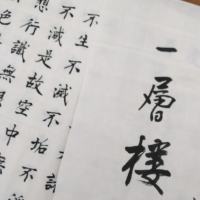 一層樓
不生不滅不垢不
不減是故空中
想行識無
色